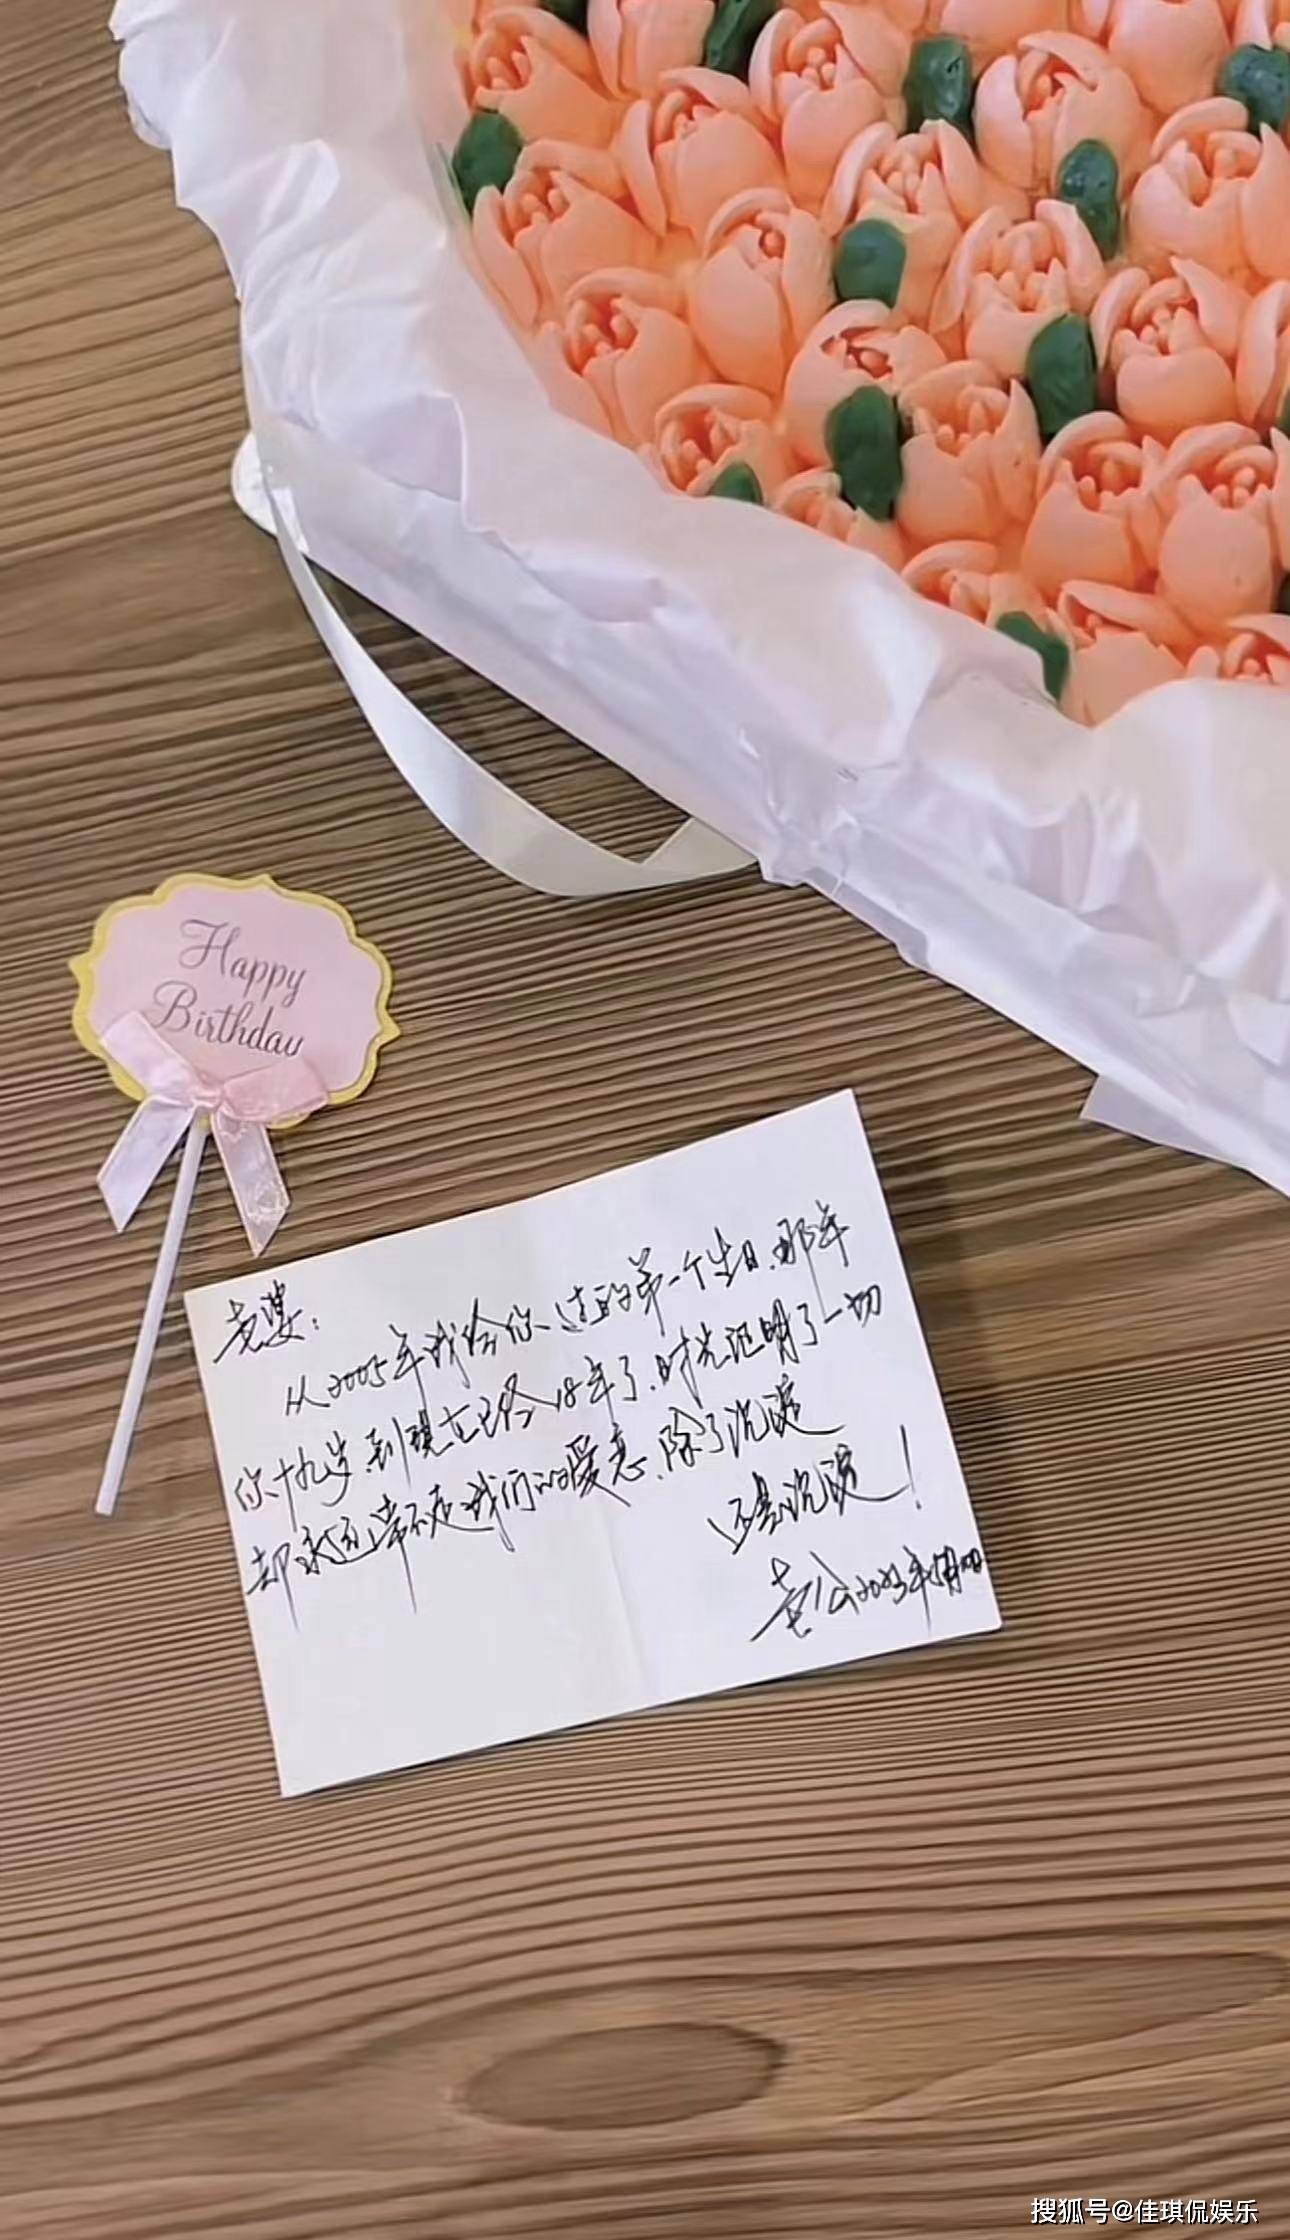 Happy
Birthday
老婆：
从2005年我给你过的第一个生日.那年
你十九岁.到现在已经18年了.时光证明了一切
却永远带不走我们的爱恋.除了沉淀
还是沉淀！
老公2023年
搜狐号@佳琪侃娱乐